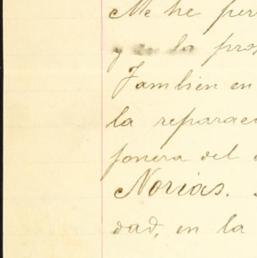 Me he per
y en la pros
Tambien en
la reparac
ponera del
Norias.
dad, en la